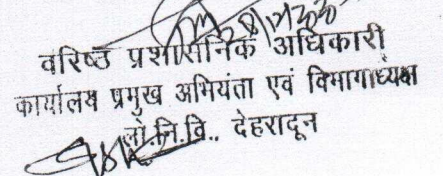 वरिष्ठ प्रशासनिक अधिकारी
कार्यालय प्रमुख अभियंता एवं विभागाध्यक्ष
लो.नि.वि.. देहरादून